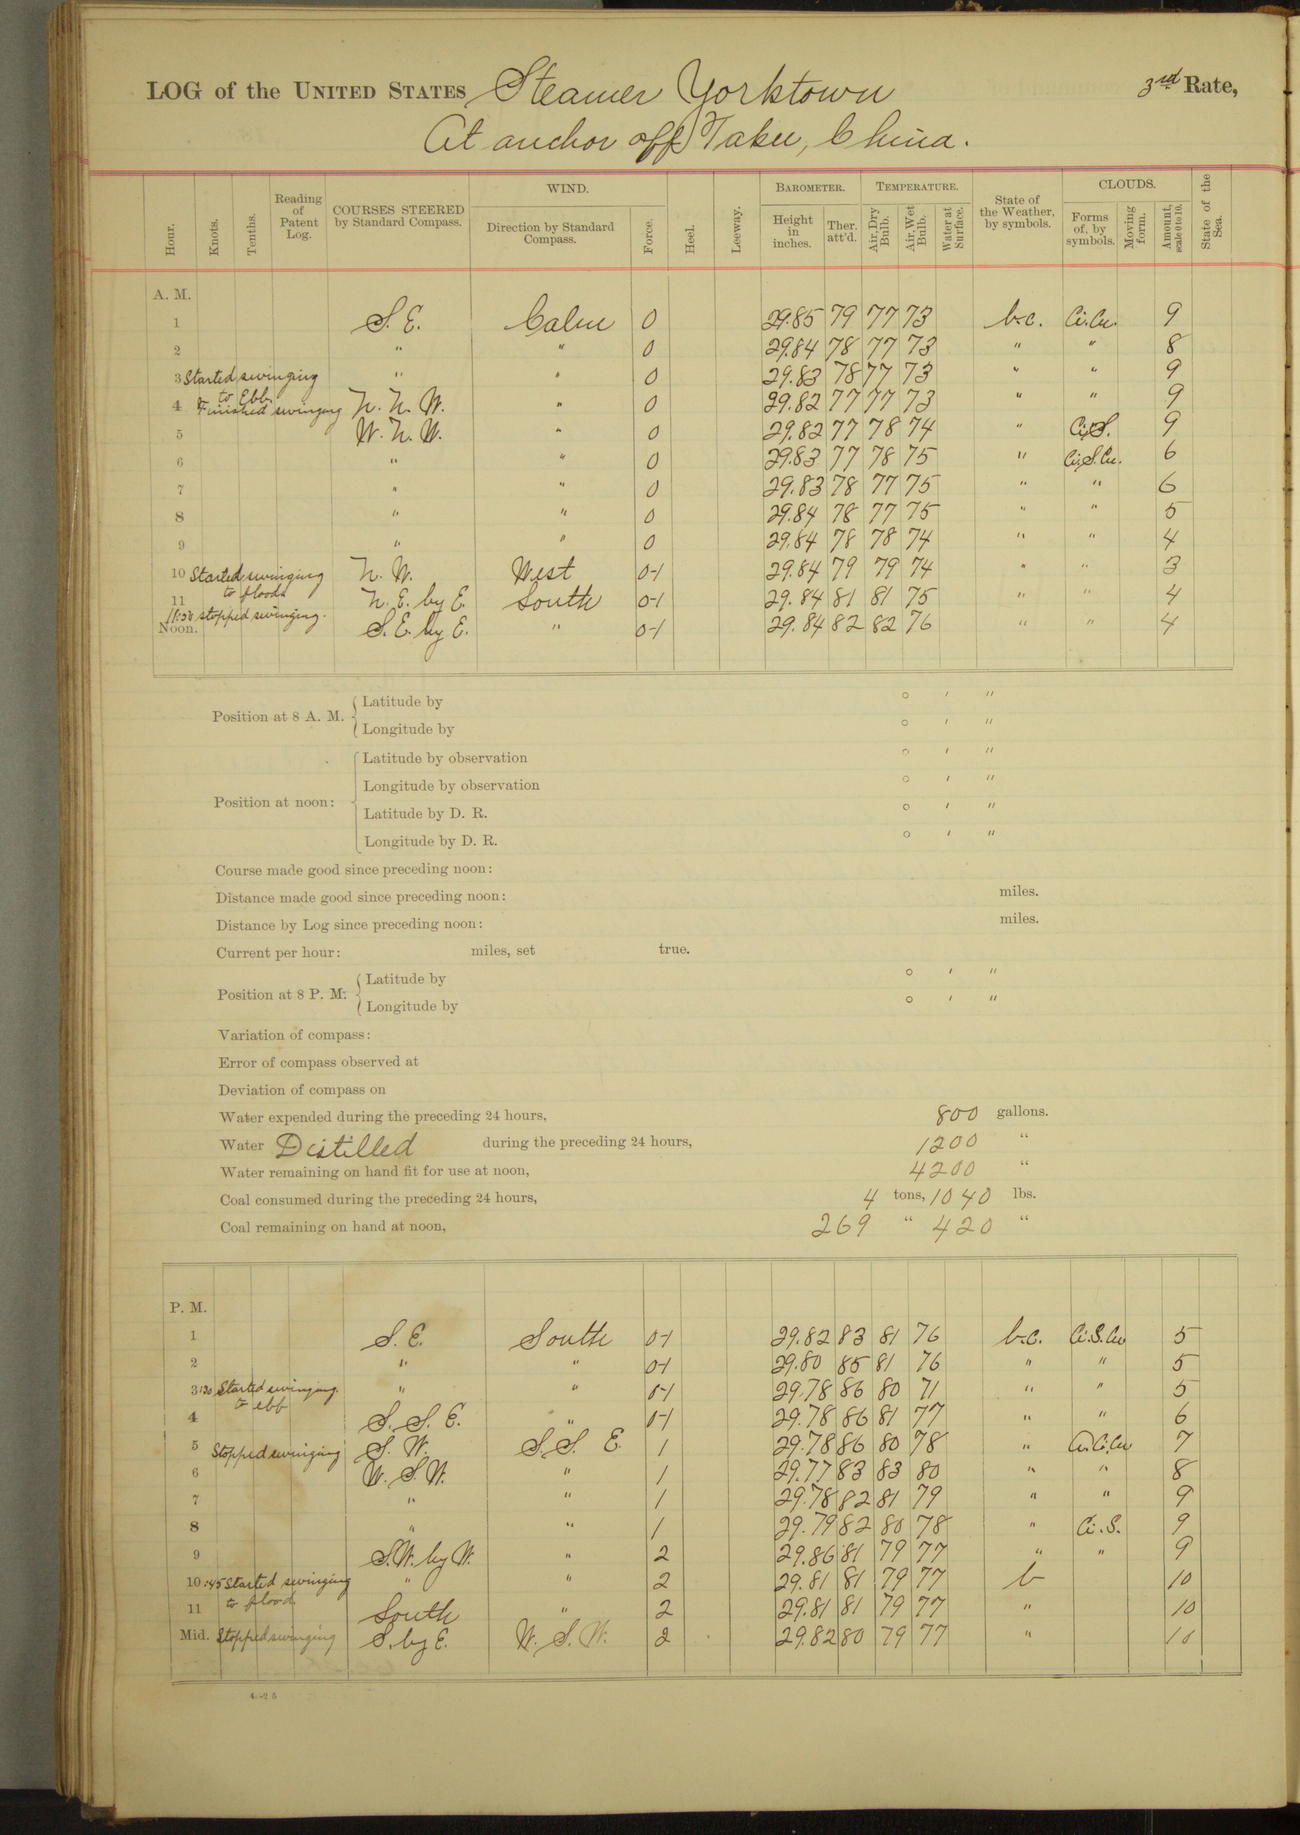 LOG of the UNITED STATES Steamer Yorktown 3rd Rate,
At anchor off Taku, China.
Hour. Knots. Tenths. Reading of Patent Log. COURSES STEERED by Standard Compass. WIND. Direction by Standard Compass. Force. Heel. Leeway. BAROMETER. Height in inches. Ther. att'd. TEMPERATURE. Air, Dry Bulb. Air, Wet Bulb. Water at Surface. State of the Weather, by symbols. CLOUDS. Forms of, by symbols. Moving form. Amount, scale 0 to 10. State of the Sea.
A. M.
1 S. E. Calm 0 29.85 79 77 73 b.c. Ci.Cu. 9
2 " " 0 29.84 78 77 73 " " 8
3 Started swinging to Ebb. " " 0 29.83 78 77 73 " " 9
4 Finished swinging N. N. W. " 0 29.82 77 77 73 " " 9
5 W. N. W. " 0 29.82 77 78 74 " Ci.S. 9
6 " " 0 29.83 77 78 75 " Ci.S.Cu. 6
7 " " 0 29.83 78 77 75 " " 6
8 " " 0 29.84 78 77 75 " " 5
9 " " 0 29.84 78 78 74 " " 4
10 Started swinging to flood. N. W. West 0-1 29.84 79 79 74 " " 3
11 N. E. by E. South 0-1 29.84 81 81 75 " " 4
11:30 stopped swinging.
Noon. S. E. by E. " 0-1 29.84 82 82 76 " " 4
Position at 8 A. M. Latitude by ° ′ ″
Longitude by ° ′ ″
Position at noon: Latitude by observation ° ′ ″
Longitude by observation ° ′ ″
Latitude by D. R. ° ′ ″
Longitude by D. R. ° ′ ″
Course made good since preceding noon:
Distance made good since preceding noon: miles.
Distance by Log since preceding noon: miles.
Current per hour: miles, set true.
Position at 8 P. M. Latitude by ° ′ ″
Longitude by ° ′ ″
Variation of compass:
Error of compass observed at
Deviation of compass on
Water expended during the preceding 24 hours, 800 gallons.
Water Distilled during the preceding 24 hours, 1200 "
Water remaining on hand fit for use at noon, 4200 "
Coal consumed during the preceding 24 hours, 4 tons, 1040 lbs.
Coal remaining on hand at noon, 269 " 420 "
P. M.
1 S. E. South 0-1 29.82 83 81 76 b.c. Ci.S.Cu 5
2 " " 0-1 29.80 85 81 76 " " 5
3:30 Started swinging to ebb " " 0-1 29.78 86 80 71 " " 5
4 S. S. E. " 0-1 29.78 86 81 77 " " 6
5 Stopped swinging S. W. S. S. E. 1 29.78 86 80 78 " Ci.Ci.Cu 7
6 W. S. W. " 1 29.77 83 83 80 " " 8
7 " " 1 29.78 82 81 79 " " 9
8 " " 1 29.79 82 80 78 " Ci.S. 9
9 S. W. by W. " 2 29.86 81 79 77 " " 9
10:45 Started swinging to flood " " 2 29.81 81 79 77 b 10
11 South " 2 29.81 81 79 77 " 10
Mid. Stopped swinging S. by E. W. S. W. 2 29.82 80 79 77 " 10
4-25